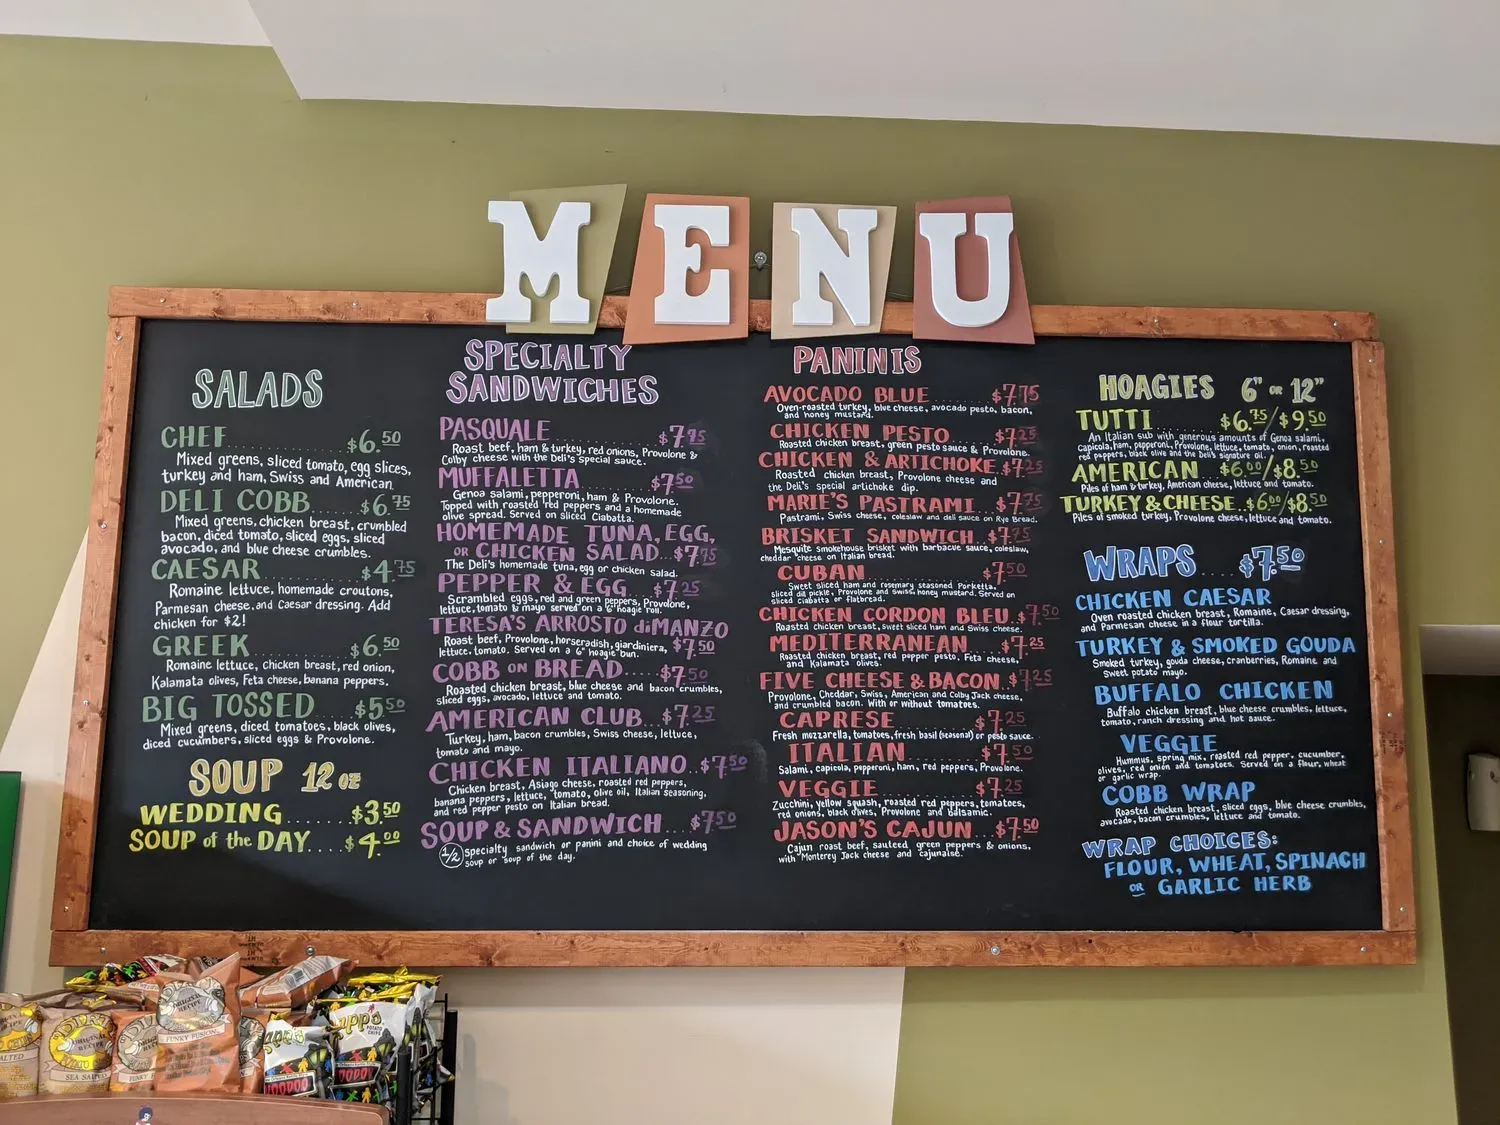 MENU
SALADS
CHEF $6.50
Mixed greens, sliced tomato, egg slices,
turkey and ham, Swiss and American.
DELI COBB $6.75
Mixed greens, chicken breast, crumbled
bacon, diced tomato, sliced eggs, sliced
avocado, and blue cheese crumbles.
CAESAR $4.75
Romaine lettuce, homemade croutons,
Parmesan cheese, and Caesar dressing. Add
chicken for $2!
GREEK $6.50
Romaine lettuce, chicken breast, red onion,
Kalamata olives, Feta cheese, banana peppers.
BIG TOSSED $5.50
Mixed greens, diced tomatoes, black olives,
diced cucumbers, sliced eggs & Provolone.
SOUP 12 oz
WEDDING $3.50
SOUP of the DAY.... $4.00
SPECIALTY
SANDWICHES
PASQUALE $7.95
Roast beef, ham & turkey, red onions, Provolone &
Colby cheese with the Deli's special sauce.
MUFFALETTA $7.50
Genoa salami, pepperoni, ham & Provolone.
Topped with roasted red peppers and a homemade
olive spread. Served on sliced Ciabatta.
HOMEMADE TUNA, EGG,
OR CHICKEN SALAD... $7.75
The Deli's homemade tuna, egg or chicken salad.
PEPPER & EGG $7.25
Scrambled eggs, red and green peppers, Provolone,
lettuce, tomato & mayo served on a 6" hoagie roll.
TERESA'S ARROSTO diMANZO
Roast beef, Provolone, horseradish, giardiniera, $7.50
lettuce, tomato. Served on a 6" hoagie bun.
COBB ON BREAD $7.50
Roasted chicken breast, blue cheese and bacon crumbles,
sliced eggs, avocado, lettuce and tomato.
AMERICAN CLUB... $7.25
Turkey, ham, bacon crumbles, Swiss cheese, lettuce,
tomato and mayo.
CHICKEN ITALIANO.. $7.50
Chicken breast, Asiago cheese, roasted red peppers,
banana peppers, lettuce, tomato, olive oil, Italian seasoning,
and red pepper pesto on Italian bread.
SOUP & SANDWICH ... $7.50
1/2 specialty sandwich or panini and choice of wedding
soup or soup of the day.
PANINIS
AVOCADO BLUE $7.75
Oven-roasted turkey, blue cheese, avocado pesto, bacon,
and honey mustard.
CHICKEN PESTO $7.25
Roasted chicken breast, green pesto sauce & Provolone.
CHICKEN & ARTICHOKE. $7.25
Roasted chicken breast, Provolone cheese and
the Deli's special artichoke dip.
MARIE'S PASTRAMI $7.75
Pastrami, Swiss cheese, coleslaw and deli sauce on Rye Bread.
BRISKET SANDWICH $7.75
Mesquite smokehouse brisket with barbacue sauce, coleslaw,
cheddar cheese on Italian bread.
CUBAN $7.50
Sweet sliced ham and rosemary seasoned Porketta,
sliced dill pickle, Provolone and Swiss, honey mustard. Served on
sliced ciabatta or flatbread.
CHICKEN CORDON BLEU $7.50
Roasted chicken breast, sweet sliced ham and Swiss cheese.
MEDITERRANEAN $7.25
Roasted chicken breast, red pepper pesto, Feta cheese,
and Kalamata olives.
FIVE CHEESE & BACON $7.25
Provolone, Cheddar, Swiss, American and Colby Jack cheese,
and crumbled bacon. With or without tomatoes.
CAPRESE $7.25
Fresh mozzarella, tomatoes, fresh basil (seasonal) or pesto sauce.
ITALIAN $7.50
Salami, capicola, pepperoni, ham, red peppers, Provolone.
VEGGIE $7.25
Zucchini, yellow squash, roasted red peppers, tomatoes,
red onions, black olives, Provolone and balsamic.
JASON'S CAJUN $7.50
Cajun roast beef, sauteed green peppers & onions,
with Monterey Jack cheese and cajunaise.
HOAGIES 6" OR 12"
TUTTI $6.75/$9.50
An Italian sub with generous amounts of Genoa salami,
capicola, ham, pepperoni, Provolone, lettuce, tomato, onion, roasted
red peppers, black olive and the Deli's signature oil.
AMERICAN $6.00/$8.50
Piles of ham & turkey, American cheese, lettuce and tomato.
TURKEY & CHEESE.. $6.00/$8.50
Piles of smoked turkey, Provolone cheese, lettuce and tomato.
WRAPS .... $7.50
CHICKEN CAESAR
Oven roasted chicken breast, Romaine, Caesar dressing,
and Parmesan cheese in a flour tortilla.
TURKEY & SMOKED GOUDA
Smoked turkey, gouda cheese, cranberries, Romaine and
Sweet potato mayo.
BUFFALO CHICKEN
Buffalo chicken breast, blue cheese crumbles, lettuce,
tomato, ranch dressing and hot sauce.
VEGGIE
Hummus, spring mix, roasted red pepper, cucumber,
olives, red onion and tomatoes. Served on a flour, wheat
or garlic wrap.
COBB WRAP
Roasted chicken breast, sliced eggs, blue cheese crumbles,
avocado, bacon crumbles, lettuce and tomato.
WRAP CHOICES:
FLOUR, WHEAT, SPINACH
OR GARLIC HERB
ORIGINAL
RECIPE
FUNKY FUSION
ORIGINAL
RECIPE
SEA SALTED
POTATO
CHIPS
VOODOO